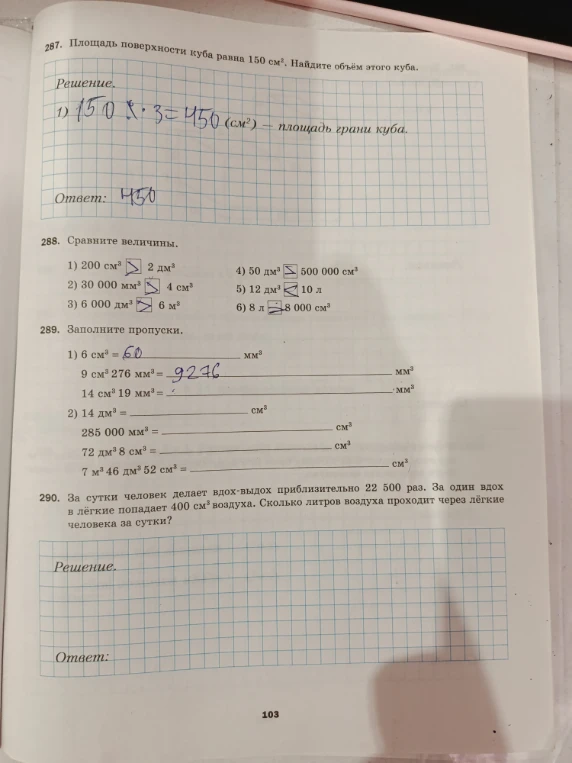 287. Площадь поверхности куба равна 150 см², Найдите объём этого куба.
Решение.
1) 150 · 3 = 450 (см²) — площадь грани куба.
Ответ: 450
288. Сравните величины.
1) 200 см³ > 2 дм³
4) 50 дм³ > 500 000 см³
2) 30 000 мм³ > 4 см³
5) 12 дм³ < 10 л
3) 6 000 дм³ > 6 м³
6) 8 л = 8 000 см³
289. Заполните пропуски.
1) 6 см³ = 60 мм³
9 см³ 276 мм³ = 9276 мм³
14 см³ 19 мм³ = мм³
2) 14 дм³ = см³
285 000 мм³ = см³
72 дм³ 8 см³ = см³
7 м³ 46 дм³ 52 см³ = см³
290. За сутки человек делает вдох-выдох приблизительно 22 500 раз. За один вдох
в лёгкие попадает 400 см³ воздуха. Сколько литров воздуха проходит через лёгкие
человека за сутки?
Решение.
Ответ:
103